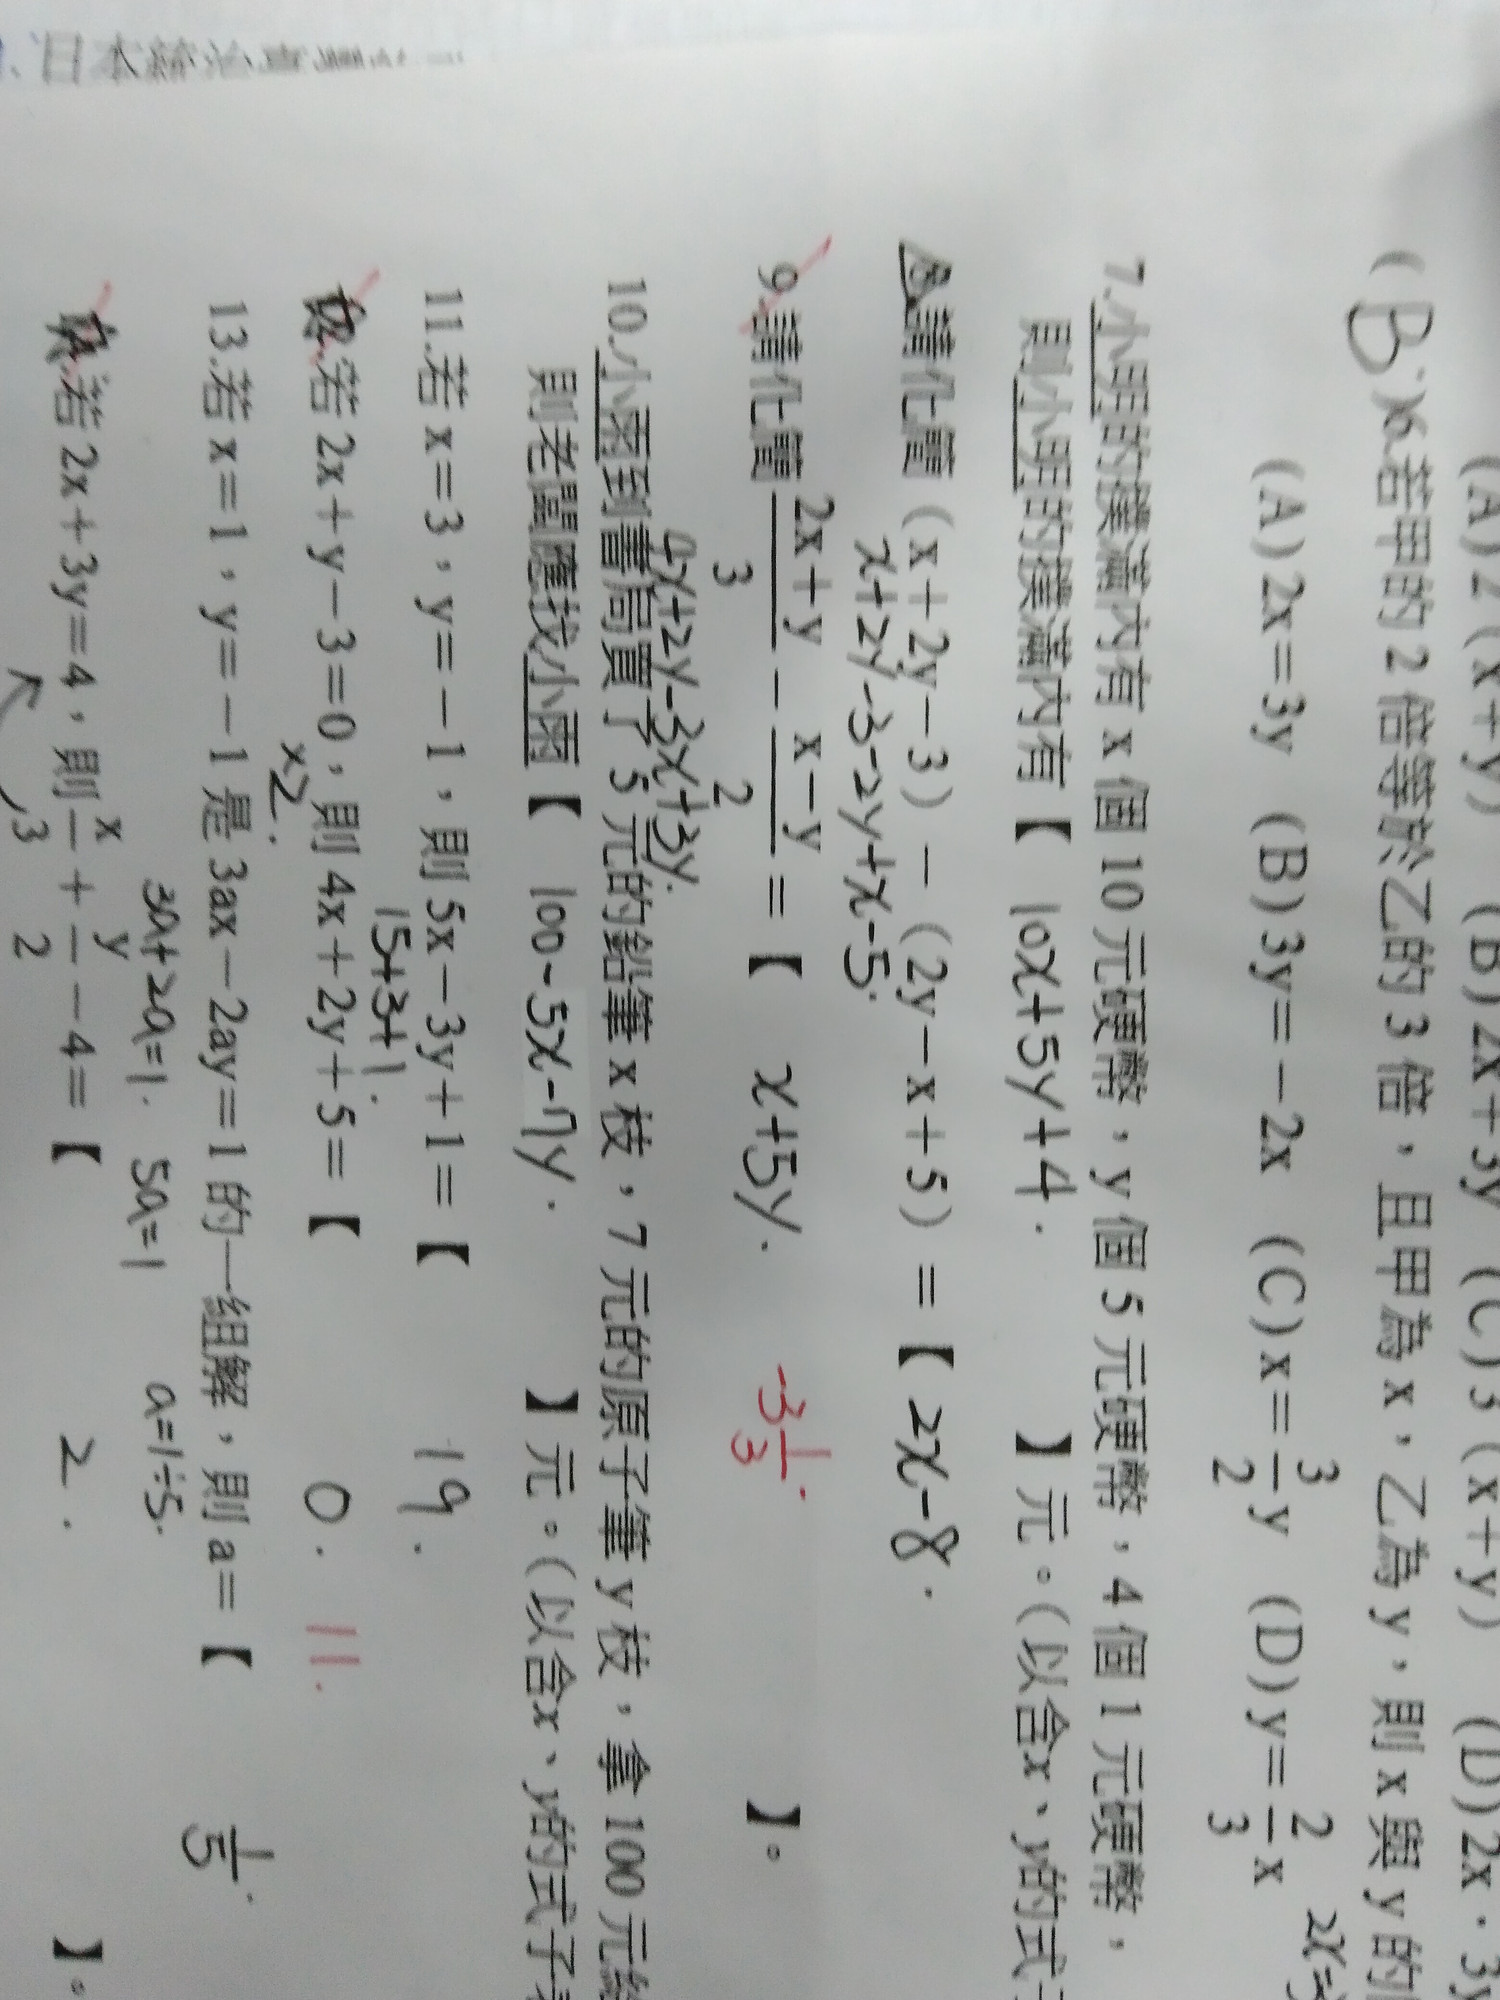 (A) 2 (x+y) (B) 2x+3y (C) 3 (x+y) (D) 2x．3y
( B )6.若甲的 2 倍等於乙的 3 倍，且甲為 x，乙為 y，則 x 與 y 的
(A) 2x=3y (B) 3y=-2x (C) x=3/2 y (D) y=2/3 x
2x=
7.小明的撲滿內有 x 個 10 元硬幣，y 個 5 元硬幣，4 個 1 元硬幣，
則小明的撲滿內有【 10x+5y+4. 】元。(以含x、y的式子
8.請化簡 (x+2y-3) - (2y-x+5) =【 2x-8.
x+2y-3-2y+x-5.
9.請化簡 (2x+y)/3 - (x-y)/2 =【 x+5y. -3 1/3. 】。
4x+2y-3x+3y.
10.小雨到書局買了 5 元的鉛筆 x 枝，7 元的原子筆 y 枝，拿 100 元
則老闆應找小雨【 100-5x-7y. 】元。(以含x、y的式子
11.若 x=3，y=-1，則 5x-3y+1=【 19.
15+3+1.
12.若 2x+y-3=0，則 4x+2y+5=【 0. 11.
x2.
13.若 x=1，y=-1 是 3ax-2ay=1 的一組解，則 a=【 1/5.
3a+2a=1. 5a=1 a=1÷5.
14.若 2x+3y=4，則 x/3 + y/2 -4=【 2. 】。